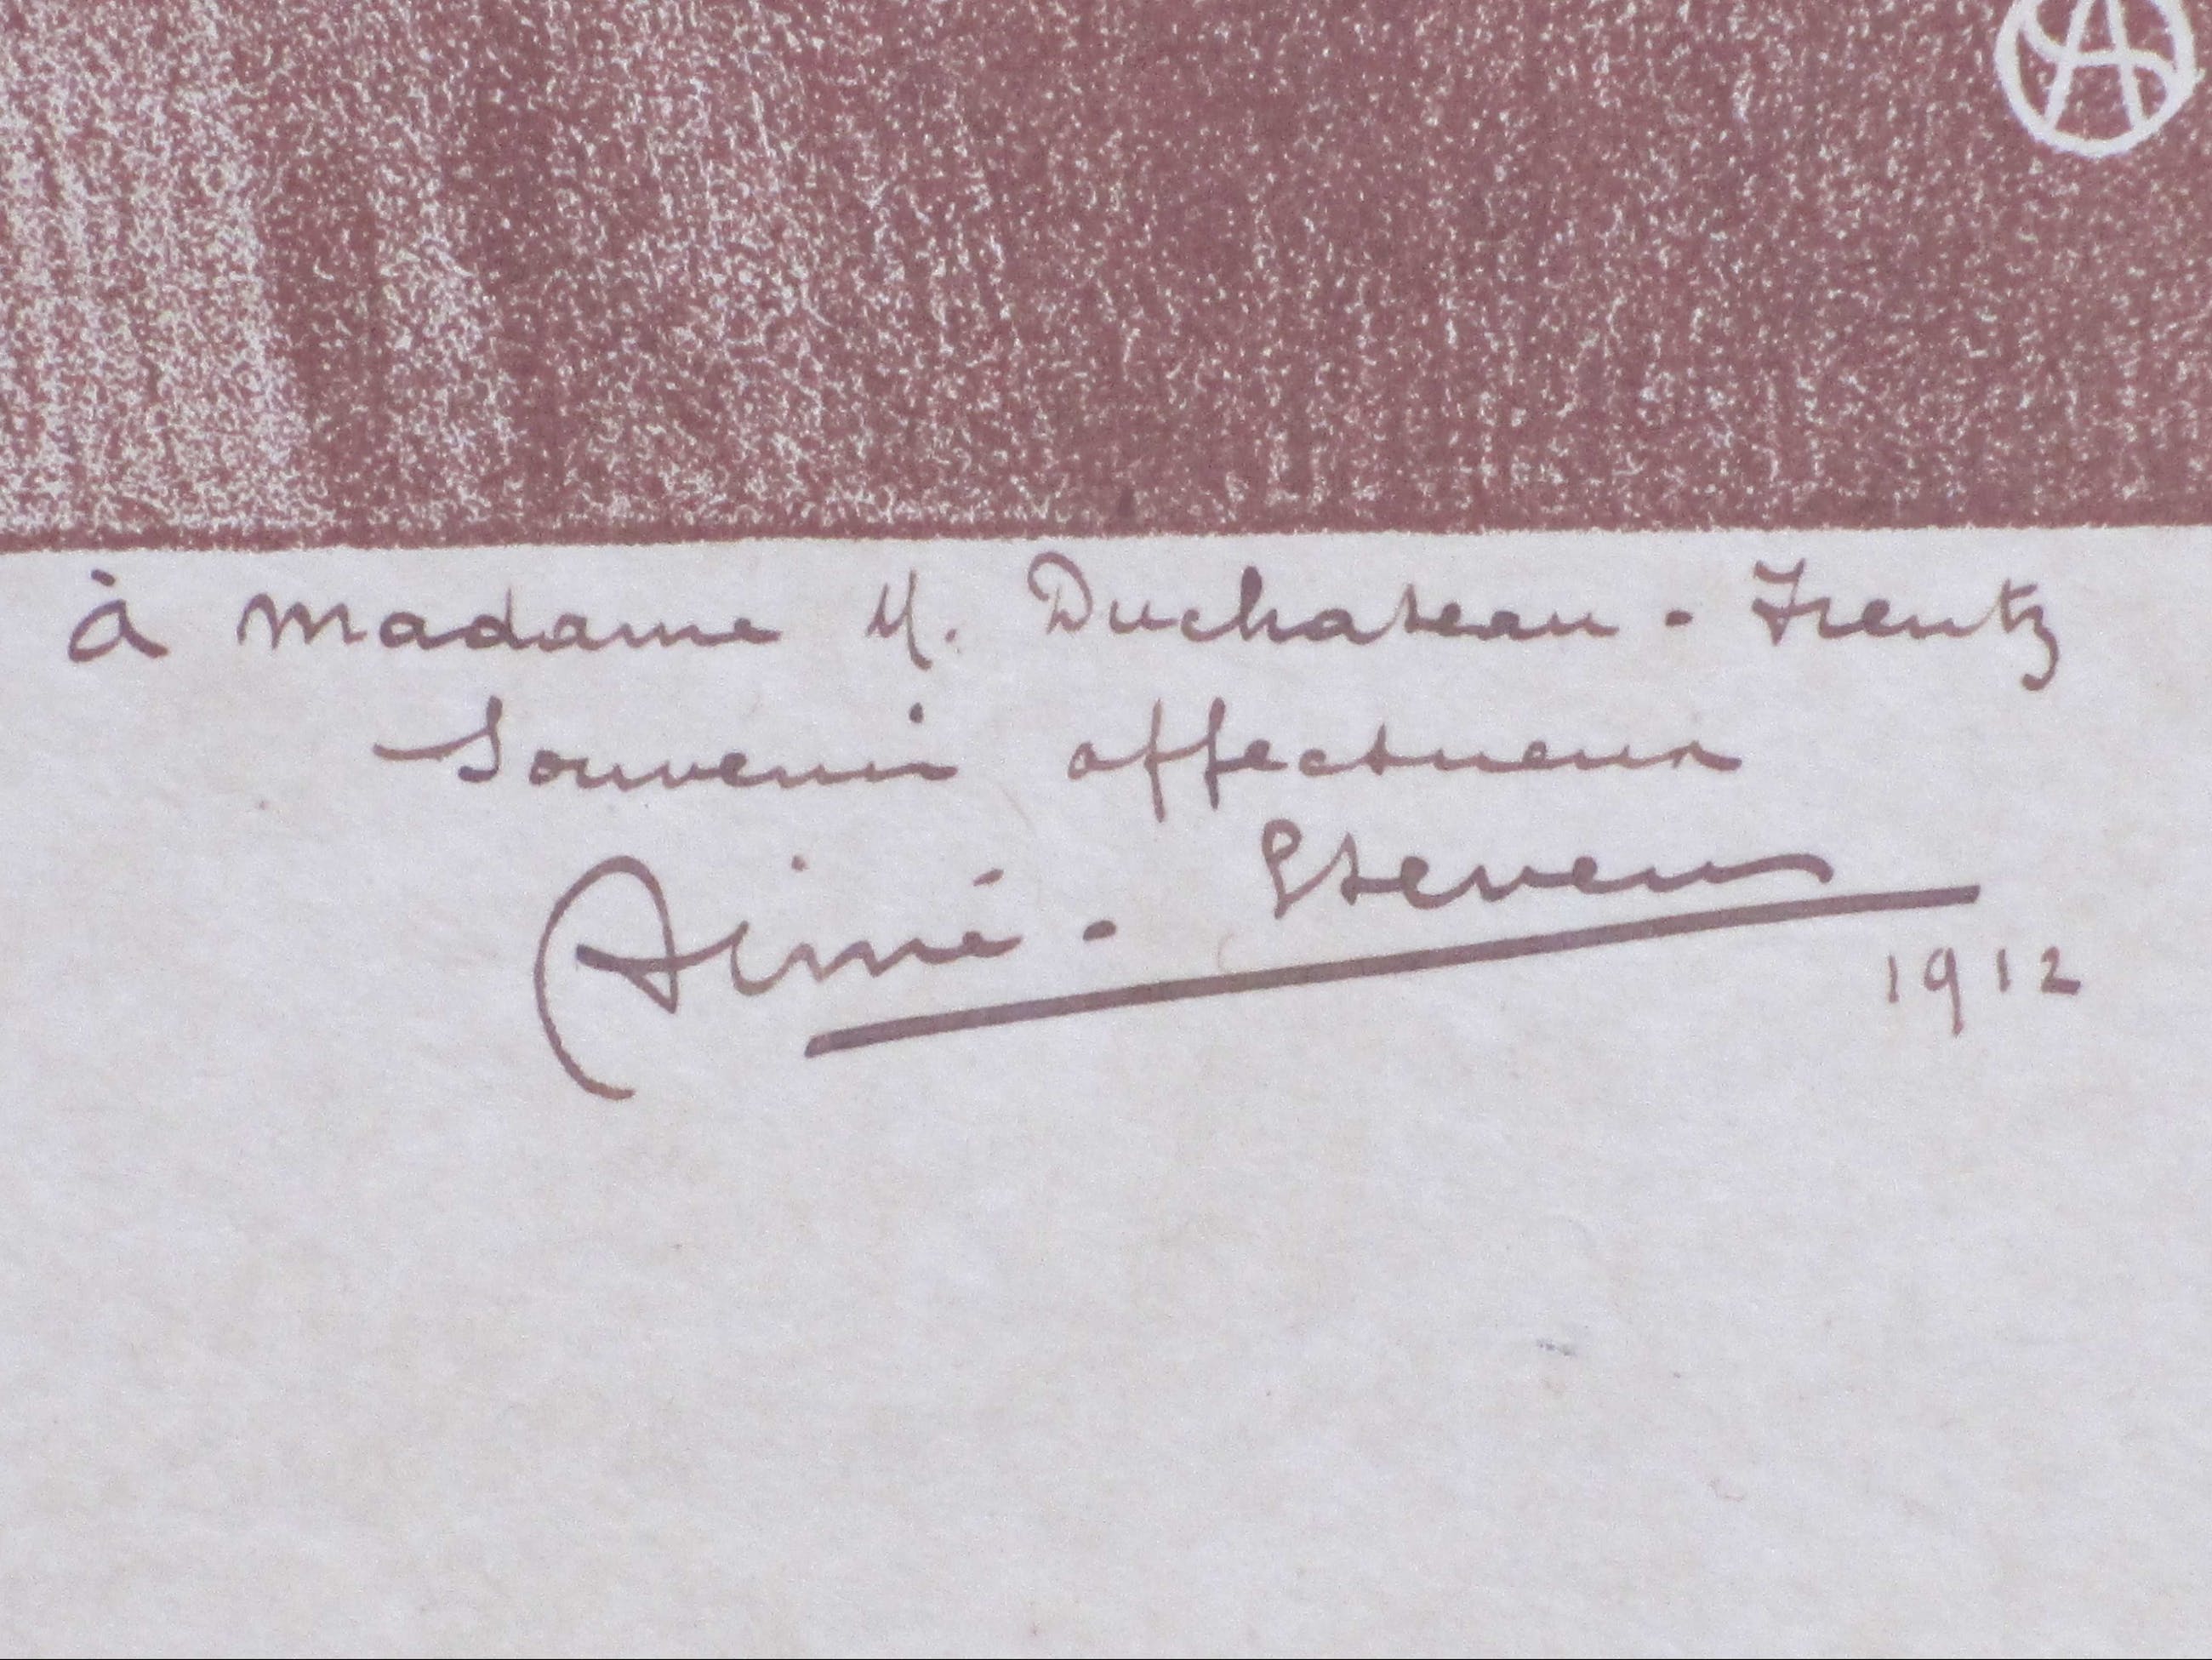 à Madame M. Duchateau - Frentz
Souvenir affectueux
Aimé - Stevens
1912